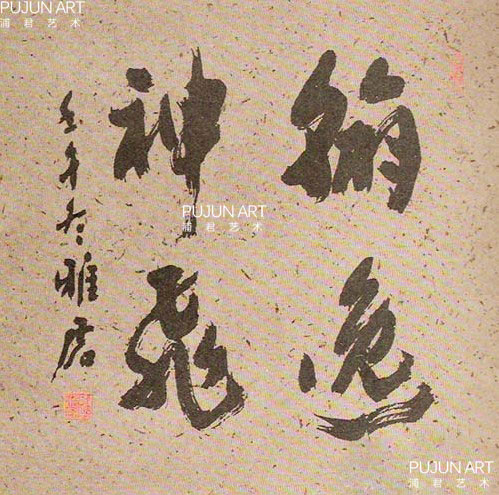 PUJUN ART
浦君艺术
翰逸
神飛
壬午 雅居
PUJUN ART
浦君艺术
PUJUN ART
浦君艺术